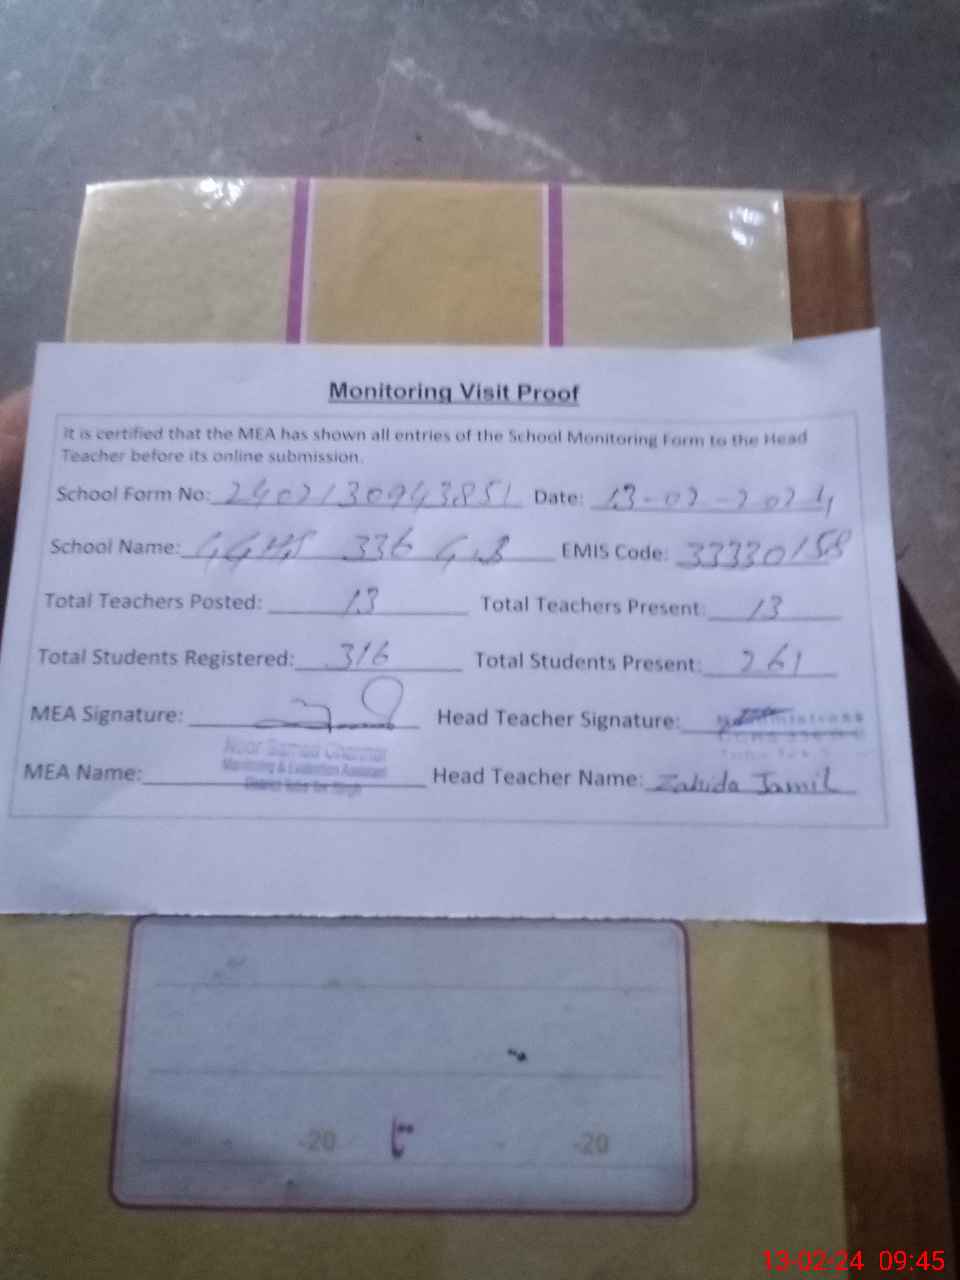 Monitoring Visit Proof
It is certified that the MEA has shown all entries of the School Monitoring Form to the Head
Teacher before its online submission.
School Form No: 2402130943851 Date: 13-02-2024
School Name: GGHS 336 GB EMIS Code: 33330158
Total Teachers Posted: 13 Total Teachers Present: 13
Total Students Registered: 316 Total Students Present: 261
MEA Signature: Head Teacher Signature:
MEA Name: Head Teacher Name: Zahida Jamil
Monitoring & Evaluation Assistant
-20 ت -20
13-02-24 09:45